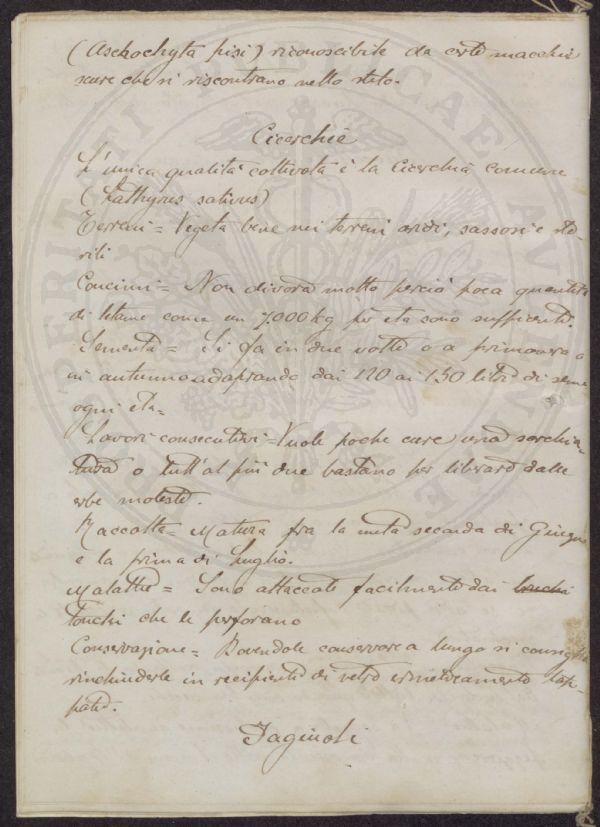 (Aschochyta pisi) riconoscibile da certe macchie
scure che si riscontrano nello stelo.
Cicerchie
L'unica qualità coltivata è la Cicerchia comune
(Lathyrus sativus)
Terreni = Vegeta bene nei terreni aridi, sassosi e ste-
rili
Concimi = Non divora molto perciò poca quantità
di letame come un 7.000 kg per eta sono sufficienti.
Sementa = Si fa in due volte o a primavera o
in autunno adoprando dai 120 ai 130 litri di seme
ogni eta =
Lavori consecutivi = Vuole poche cure una sarchia-
tura o tutt'al più due bastano per liberare dalle
erbe moleste.
Raccolta = Matura fra la metà seconda di Giugno
e la prima di Luglio.
Malattie = Sono attaccate facilmente dai
tonchi che le perforano
Conservazione = Dovendole conservare a lungo si consiglia
rinchiuderle in recipienti di vetro ermeticamente tap-
pati.
Fagiuoli